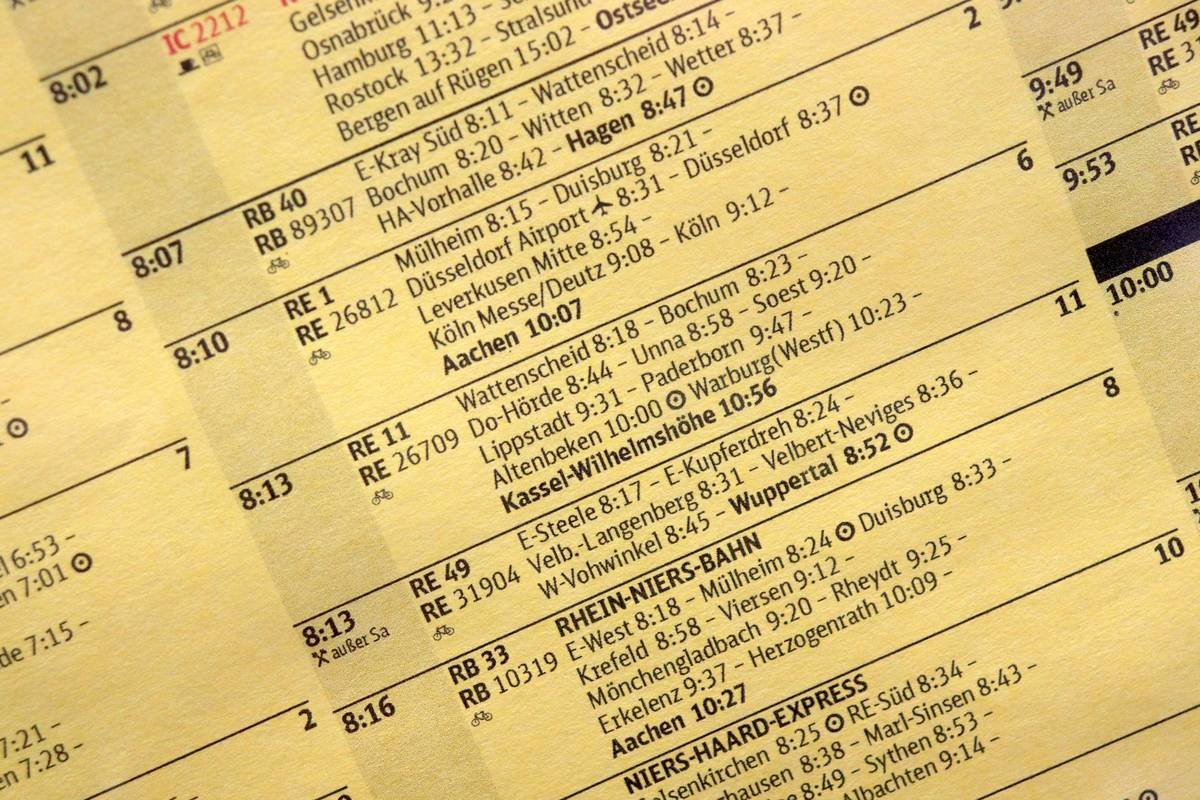 11
8
7
l 6:53 –
en 7:01
de 7:15 –
7:21 –
en 7:28 –
2
8:02
IC 2212
Osnabrück
Hamburg 11:13 –
Rostock 13:32 – Stralsund
Bergen auf Rügen 15:02 – Ostsee
2
8:07
RB 40
RB 89307
E-Kray Süd 8:11 – Wattenscheid 8:14 –
Bochum 8:20 – Witten 8:32 – Wetter 8:37 –
HA-Vorhalle 8:42 – Hagen 8:47
8:10
RE 1
RE 26812
6
Mülheim 8:15 – Duisburg 8:21 –
Düsseldorf Airport 8:31 – Düsseldorf 8:37
Leverkusen Mitte 8:54 –
Köln Messe/Deutz 9:08 – Köln 9:12 –
Aachen 10:07
8:13
RE 11
RE 26709
11
Wattenscheid 8:18 – Bochum 8:23 –
Do-Hörde 8:44 – Unna 8:58 – Soest 9:20 –
Lippstadt 9:31 – Paderborn 9:47 –
Altenbeken 10:00 Warburg(Westf) 10:23 –
Kassel-Wilhelmshöhe 10:56
8:13
außer Sa
RE 49
RE 31904
8
E-Steele 8:17 – E-Kupferdreh 8:24 –
Velb.-Langenberg 8:31 – Velbert-Neviges 8:36 –
W-Vohwinkel 8:45 – Wuppertal 8:52
8:16
RB 33
RB 10319
10
RHEIN-NIERS-BAHN
E-West 8:18 – Mülheim 8:24 Duisburg 8:33 –
Krefeld 8:58 – Viersen 9:12 –
Mönchengladbach 9:20 – Rheydt 9:25 –
Erkelenz 9:37 – Herzogenrath 10:09 –
Aachen 10:27
NIERS-HAARD-EXPRESS
elsenkirchen 8:25 RE-Süd 8:34 –
hausen 8:38 – Marl-Sinsen 8:43 –
8:49 – Sythen 8:53 –
Albachten 9:14 –
9:49
außer Sa
RE 49
RE 31
9:53
RE
10:00